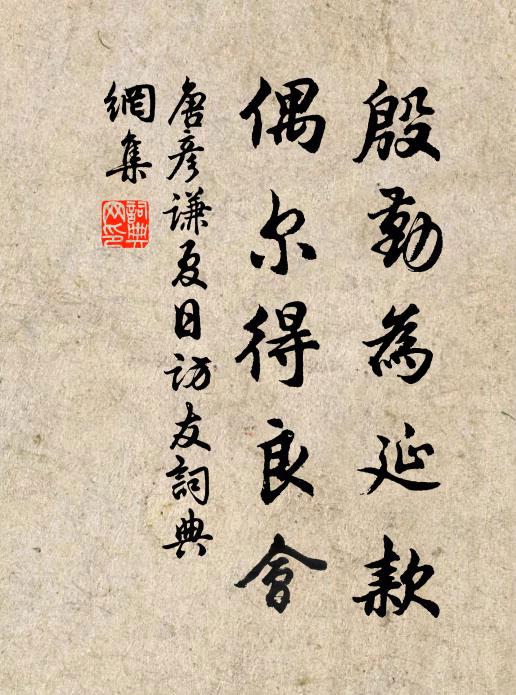 殷勤為延款
偶尔得良會
唐彥謙夏日訪友詞典
網集
詞典
网印